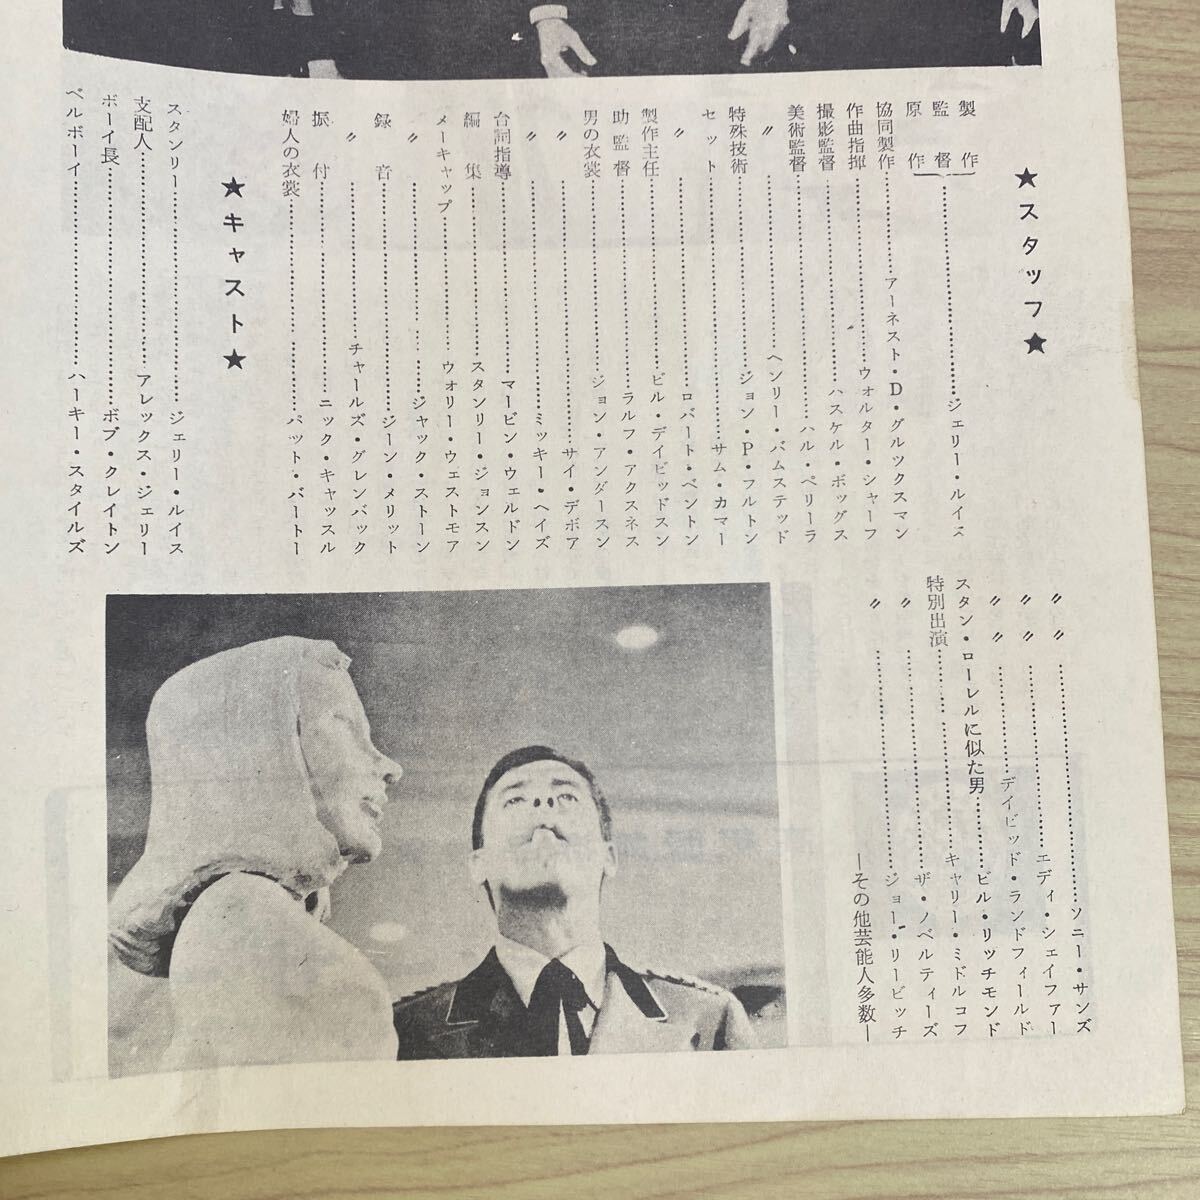 ★スタッフ★
製作
監督
原作……ジェリー・ルイス
協同製作……アーネスト・D・グルックスマン
作曲指揮……ウォルター・シャーフ
撮影監督……ハスケル・ボッグス
美術監督……ハル・ペリーラ
〃……ヘンリー・バムステッド
特殊技術……ジョン・P・フルトン
セット……サム・カマー
〃……ロバート・ベントン
製作主任……ビル・デイビッドスン
助監督……ラルフ・アクスネス
男の衣裳……ジョン・アンダースン
〃……サイ・デボア
〃……ミッキー・ヘイズ
台詞指導……マービン・ウェルドン
編集……スタンリー・ジョンスン
メーキャップ……ウォリー・ウェストモア
〃……ジャック・ストーン
録音……ジーン・メリット
〃……チャールズ・グレンバック
振付……ニック・キャッスル
婦人の衣裳……パット・バートー
★キャスト★
スタンリー……ジェリー・ルイス
支配人……アレックス・ジェリー
ボーイ長……ボブ・クレイトン
ベルボーイ……ハーキー・スタイルズ
〃〃……ソニー・サンズ
〃〃……エディ・シェイファー
〃〃……デイビッド・ランドフィールド
スタン・ローレルに似た男……ビル・リッチモンド
特別出演……キャリー・ミドルコフ
〃……ザ・ノベルティーズ
〃……ジョー・リービッチ
―その他芸能人多数―